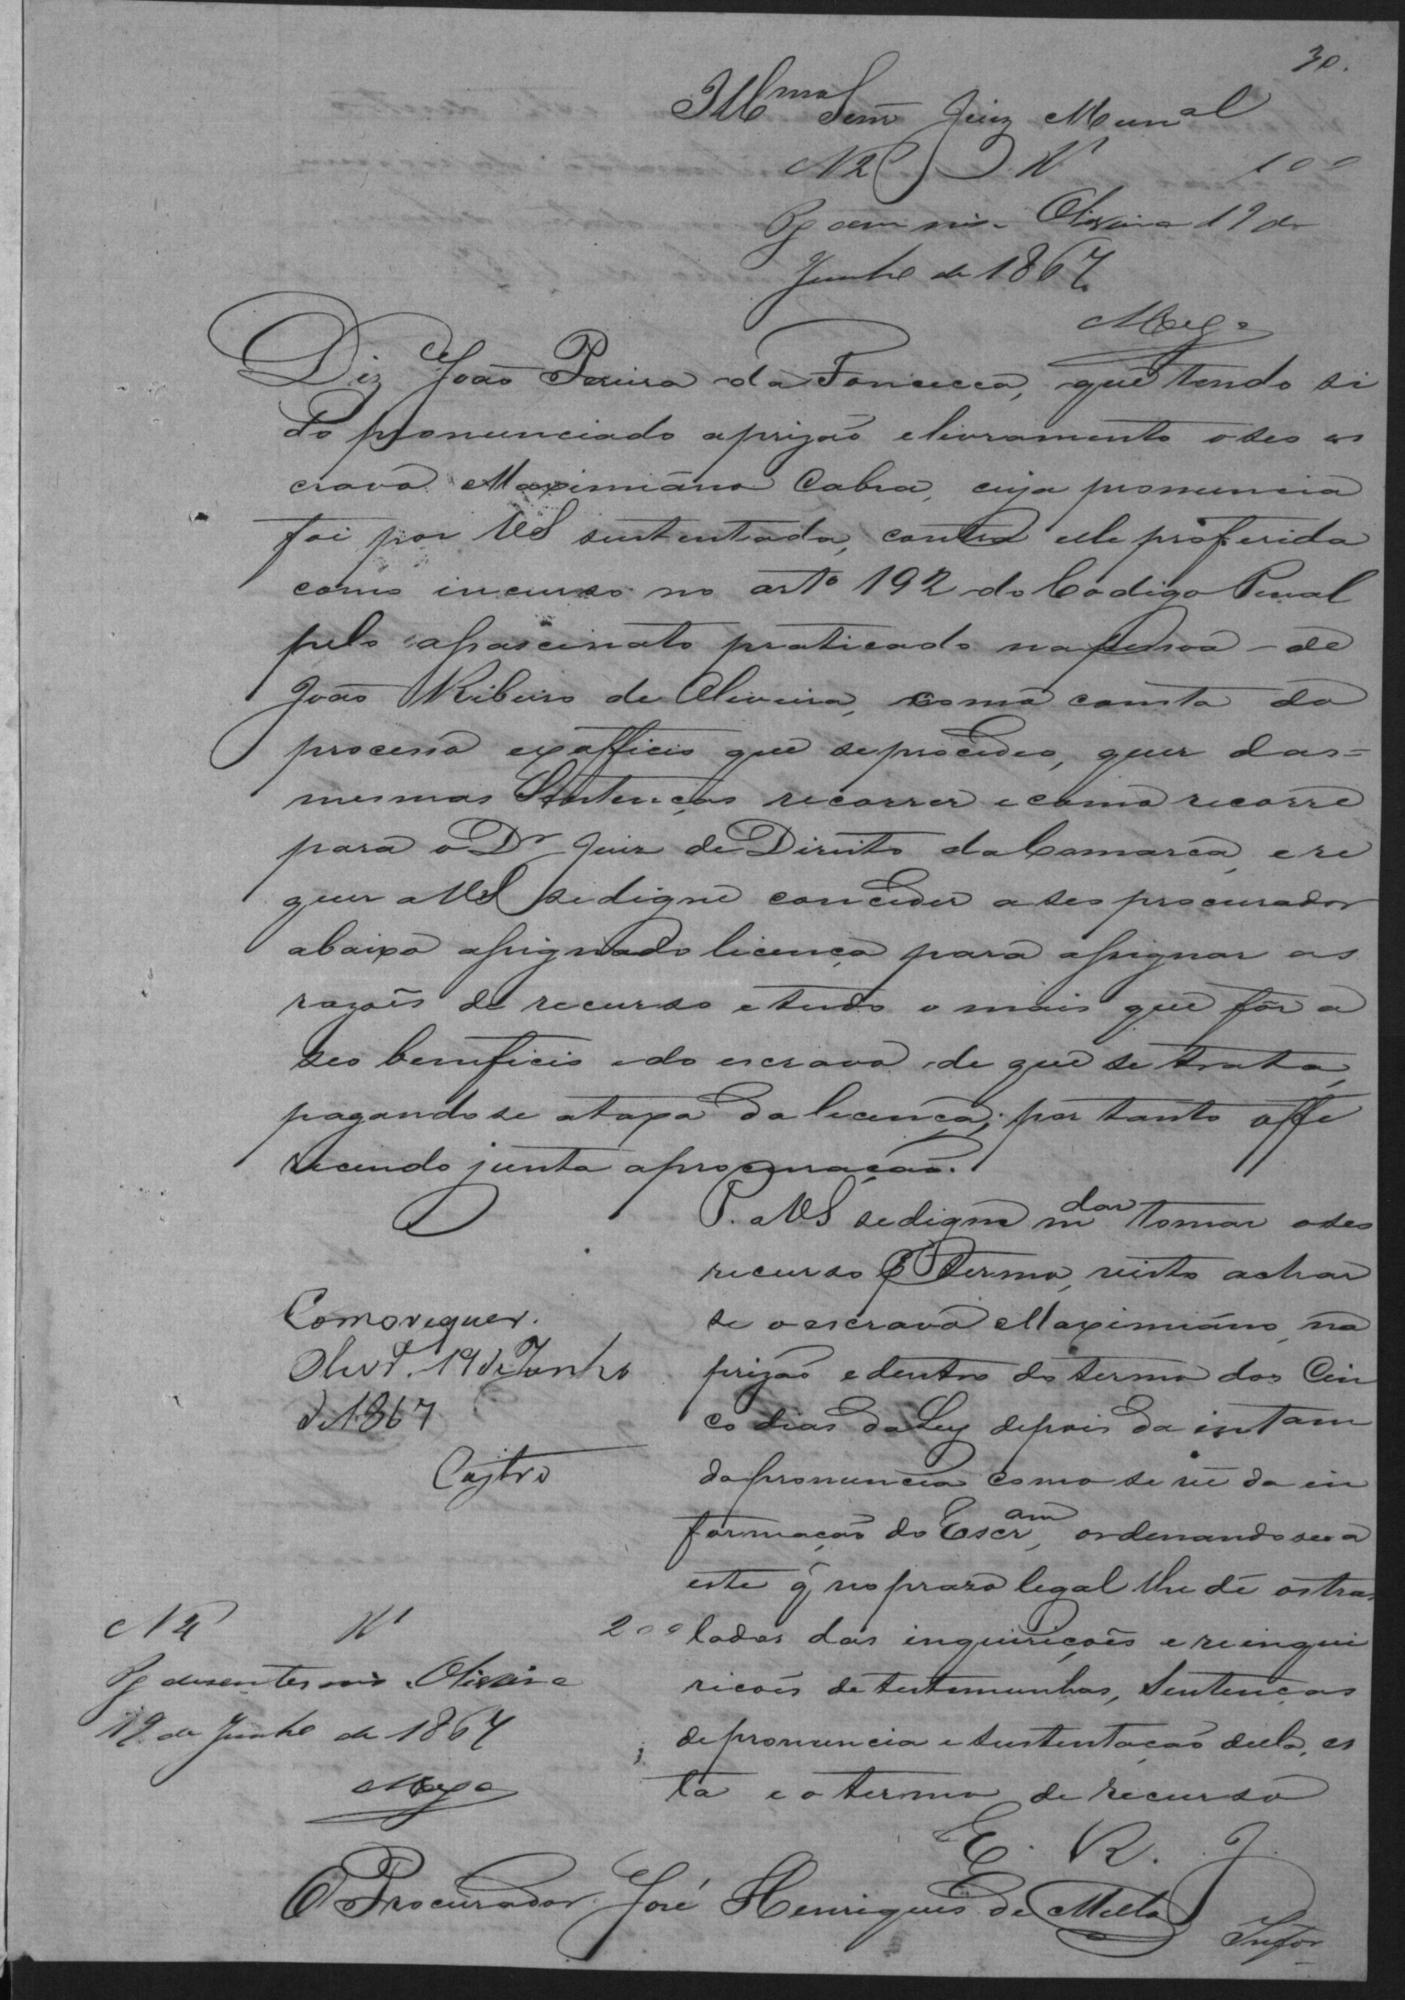 30.
Illmo Senr Juiz Munal
N 2 R 100
Pg cem reis. Oliveira 19 de
Junho de 1867.
Diz João Pereira da Fonceca, que tendo si
do pronunciado aprizão elivramento oseo es
cravo Maximiano Cabra, cuja pronuncia
foi por VS sustentada, contra elle proferida
como incurso no arto 192 do Codigo Penal
pelo assascinato praticado napessoa de
João Ribeiro de Oliveira, como consta do
processo exofficio que seprocedeo, quer das=
mesmas Sentenças recorrer ecomo recorre
para o Dr Juiz de Direito daComarca, ere
quer aVS sedigne conceder aseo procurador
abaixo assignado licença para assignar as
razões de recurso etudo o mais que fôr a
seo beneficio edo escravo de que se trata,
pagandose ataxa da licença; por tanto offe
recendo junta aprocuração.
P. aVS sedigne mdar tomar oseo
recurso P Termo, visto achar
se oescravo Maximiano na
prizão edentro do termo dos Cin
co dias da Ley depois da intam
dapronuncia como se vê da in
formação do Escram, ordenandosea
este q̃ noprazo legal lhe dê ostras
lados das inquirições ereinqui
ricões de testemunhas, Sentenças
depronuncia esustentação della, es
ta eotermo de recurso
E. R. J.
Comorequer.
Olivra. 19 de Junho
de 1867
Castro
N 4 R 200
Pg dusentos reis. Oliveira
19 de Junho de 1867
O Procurador José Henriques de Mello
Infor